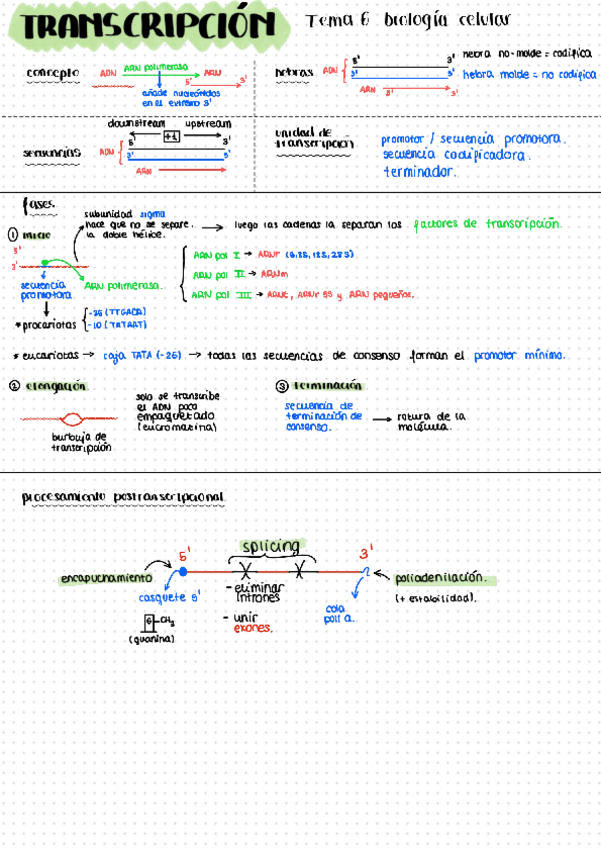 TRANSCRIPCIÓN Tema 6 biología celular
concepto
ADN ARN polimerasa ARN
3'
añade nucleótidos
en el extremo 3'
hebras
ADN
5' 3'
3' 5'
ARN 5' 3'
hebra no-molde = codifica
hebra molde = no codifica
secuencias
downstream upstream
+1
ADN
5' 3'
3' 5'
ARN
unidad de
transcripción
promotor / secuencia promotora.
secuencia codificadora.
terminador.
fases
① inicio
subunidad sigma
hace que no se separe.
la doble hélice.
luego las cadenas la separan los factores de transcripción.
5'
3'
secuencia
promotora
ARN polimerasa.
ARN pol I → ARNr
ARN pol II → ARNm
ARN pol III → ARNt, ARNr 5S y ARN pequeños.
* procariotas
-35 (TTGACA)
-10 (TATAAT)
* eucariotas → caja TATA (-25) → todas las secuencias de consenso forman el promotor mínimo.
② elongación
burbuja de
transcripción
solo se transcribe
el ADN poco
empaquetado
(eucromatina)
③ terminación
secuencia de
terminación de
consenso.
→ rotura de la
molécula.
procesamiento postranscripcional
splicing
5' 3'
encapuchamiento
casquete 5'
G-CH3
(guanina)
- eliminar
intrones
- unir
exones.
cola
poli a.
poliadenilación.
(+ estabilidad).